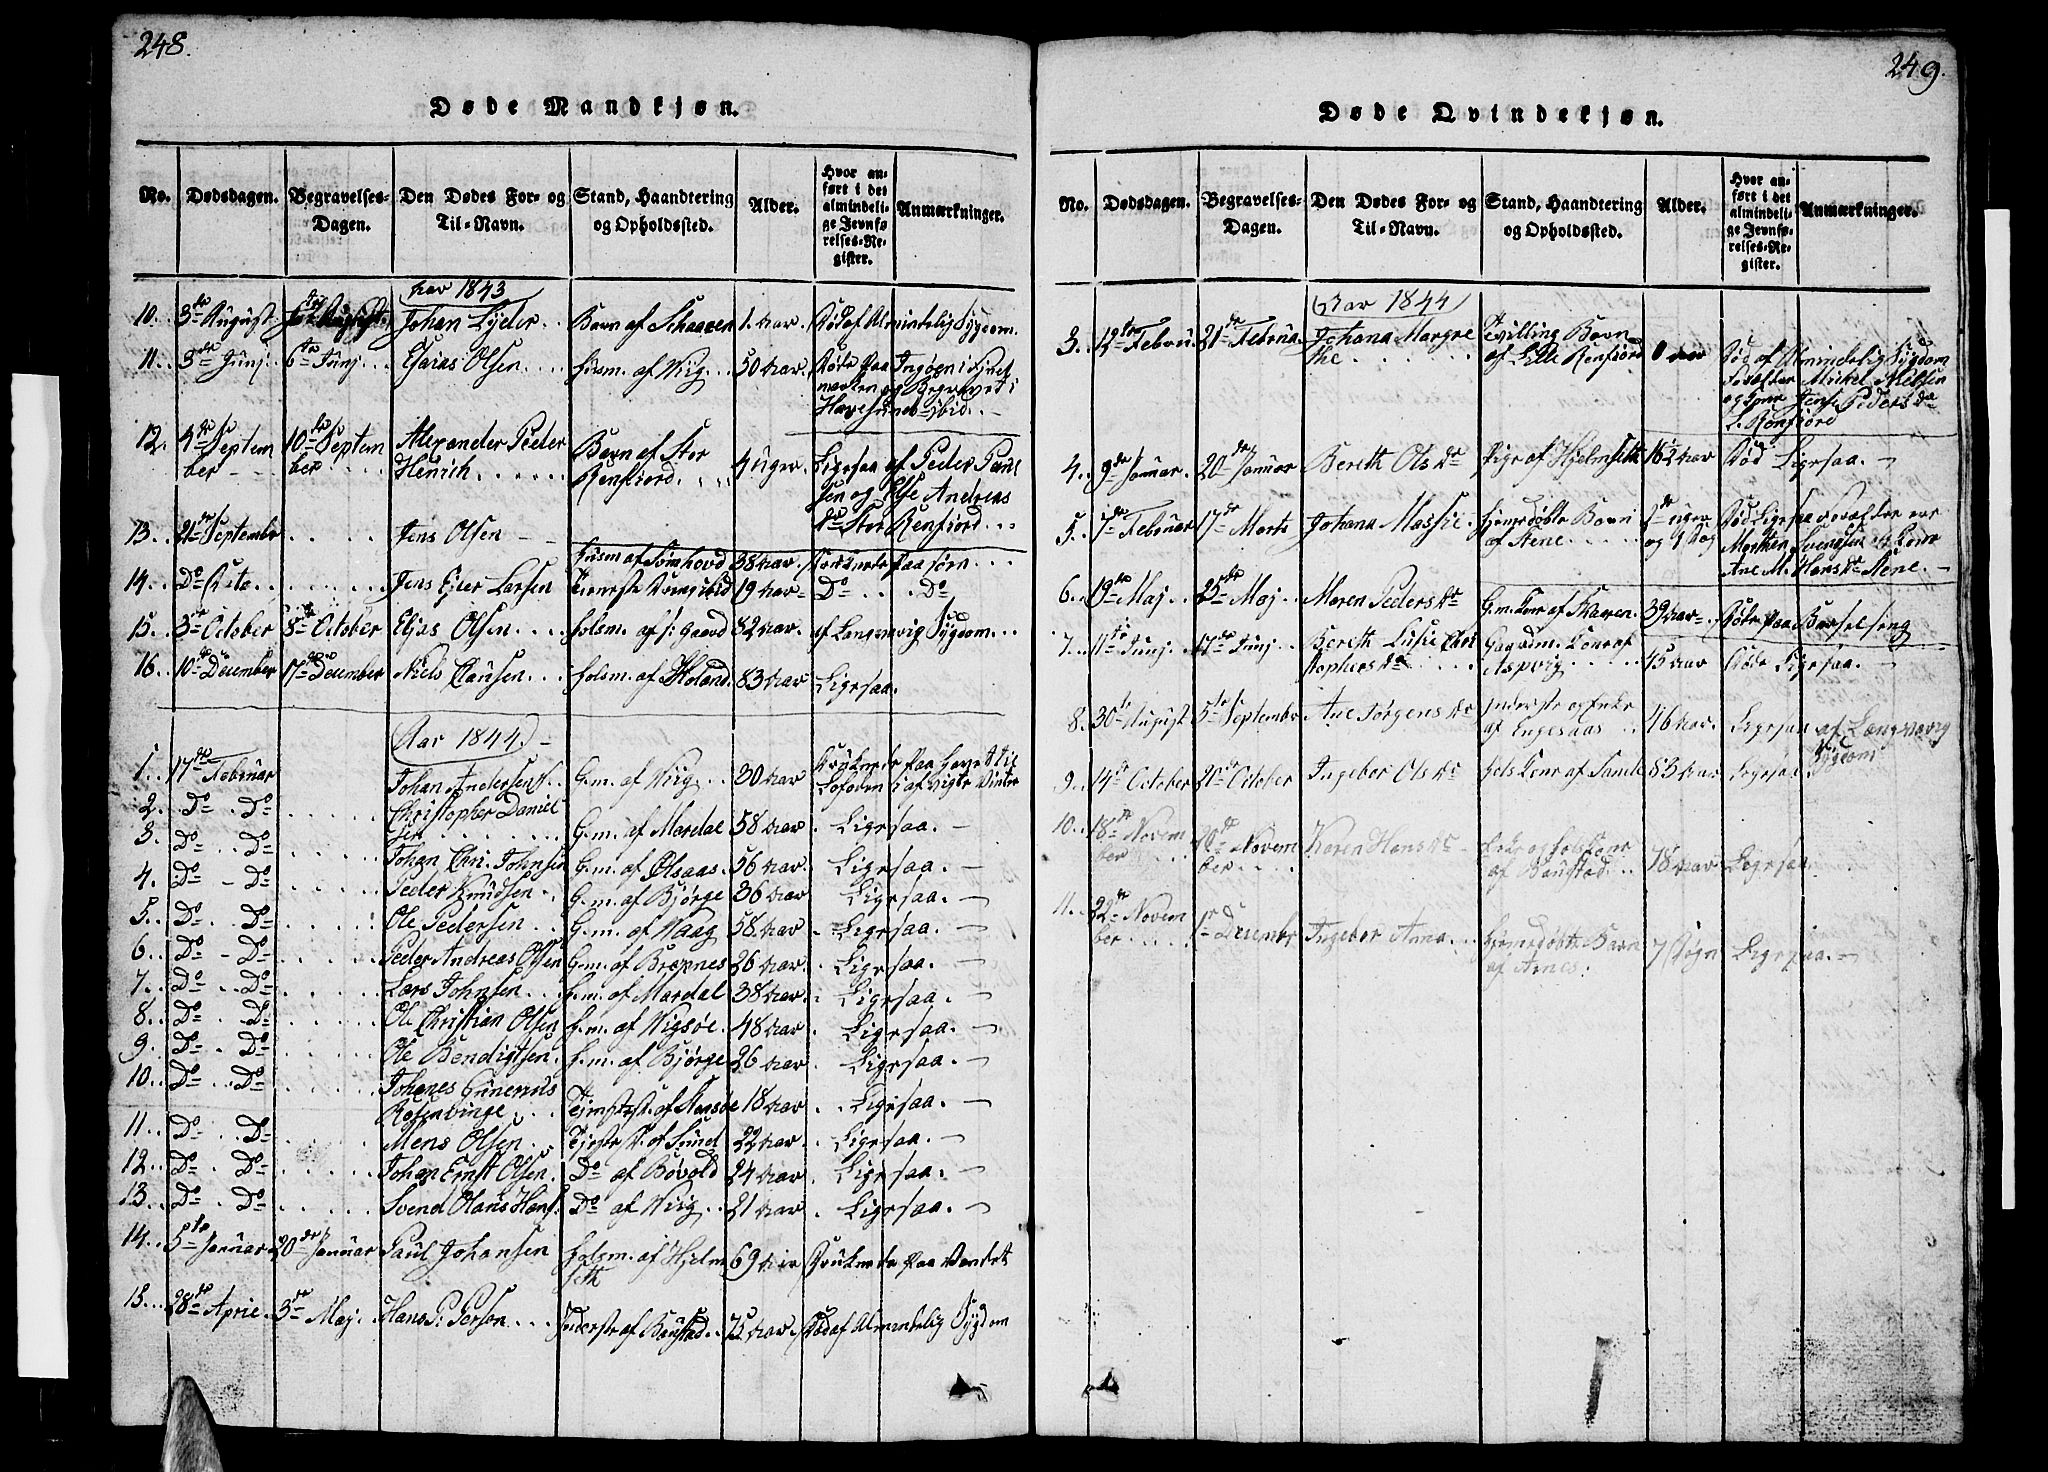 248.
Døde Mandkjøn.
No. Dødsdagen. Begravelses-Dagen. Den Dødes For- og Til-Navn. Stand, Haandtering og Opholdssted. Alder. Hvor anført i det almindelige Jevnførelses-Register. Anmærkninger.
Aar 1843
10. 3de August Johan Lyder Barn af 1. Aar. Død af Almindelig Sygdom.
11. 3de Junj 6te Junj Esaias Olsen af Wiig 50 Aar. Døde paa Ingøen i Finmarken og Begravet i Havesund ibid.
12. 4de September 10de September Alexander Peder Henrich Barn af Stor Renfiord 4 uger Ligesaa af Peder Paulsen og Else Andreas Dr Stor Renfiord
13. 21de Septembr Jens Olsen Husm. af 38 Aar. paa Søen
14. Do Jens Ejler Larsen 19 Aar Do Do
15. 3de October 8de October Elias Olsen folsm. af 82 Aar. af Langvarig Sygdom
16. 10de December 17de December Niels Clausen folsm. af 83 Aar Ligesaa.
Aar 1844.
1. 17de Februar Johan Andersen G.m. af Wiig 30 Aar paa Havet til Lofoden i afvigte Vinter
2. Do Do Christopher Danielsen G.m. af Mardal 58 Aar Ligesaa.
3. Do Do Johan Chri. Johnsen G.m. af Olsaas 56 Aar Ligesaa.
4. Do Do Peder Knudsen G.m. af Bjørge 36 Aar Ligesaa.
5. Do Do Ole Pedersen G.m. af Vaag 58 Aar Ligesaa.
6. Do Do Peder Andreas Olsen G.m. af 26 Aar Ligesaa.
7. Do Do Lars Johnsen G.m. af Mardal 38 Aar Ligesaa.
8. Do Do Ole Christian Olsen H.m. af Vigsøe 48 Aar Ligesaa.
9. Do Do Ole Bendigtsen H.m. af Bjørge 26 Aar Ligesaa.
10. Do Do Johanes Gunerius Rosenvinge 18 Aar Ligesaa.
11. Do Do Mens Olsen af Sund 22 Aar Ligesaa.
12. Do Do Johan Ernst Olsen Do af Bøvold 24 Aar Ligesaa.
13. Do Do Svend Olaus Hans. Do af Wiig 21 Aar Ligesaa.
14. 5te Januar 20de Januar Paul Johansen folsm. af Hjelmseth 69 Aar Druknede paa Vandet
15. 28de April 3de Maj Hans P: Person Inderste af Baustad 75 Aar Død af Almindelig Sygdom
249.
Døde Qvindekjøn.
No. Dødsdagen. Begravelses-Dagen. Den Dødes For- og Til-Navn. Stand, Haandtering og Opholdssted. Alder. Hvor anført i det almindelige Jevnførelses-Register. Anmærkninger.
Aar 1844
3. 12te Februa 21de Februa Johana Margrethe Tvilling Barn af Lille Renfiord Aar Død af Almindelig Sygdom Forældre Mikel Nielsen og Kone Pedersdr L. Renfiord
4. 9de Januar 20de Januar Bereth Olsdr Pige af Hjelmseth 16½ Aar Død Ligesaa.
5. 7de Februar 17de Marts Johana Massie hjemedøbte Barn af Stene uger og 1 Dag Død Ligesaa Forældre er Morten Svendsen og Kone Ane M. Hansdr Stene.
6. 19de Maj 25de Maj Maren Pedersdr G.m. Kone af 39 Aar Døde paa Barselseng
7. 11te Junj 17de Junj Bereth Lusie Christophersdr Gaardm. Kone af Aspvig 45 Aar Døde Ligesaa.
8. 30te August 5te Septembr Ane Jørgensdr Inderste og Enke af Engesaas 46 Aar. Ligesaa af Langvarig Sygdom
9. 14de October 20de October Ingebor Olsdr fols Kone af 83 Aar Ligesaa
10. 18de November 20de November Karen Hansdr Enke og fols Kone af Baustad 78 Aar Ligesaa.
11. 22de November 1te Decembr Ingebor Anna hjemedøbte Barn af Arnes: 7 Døgn Ligesaa.